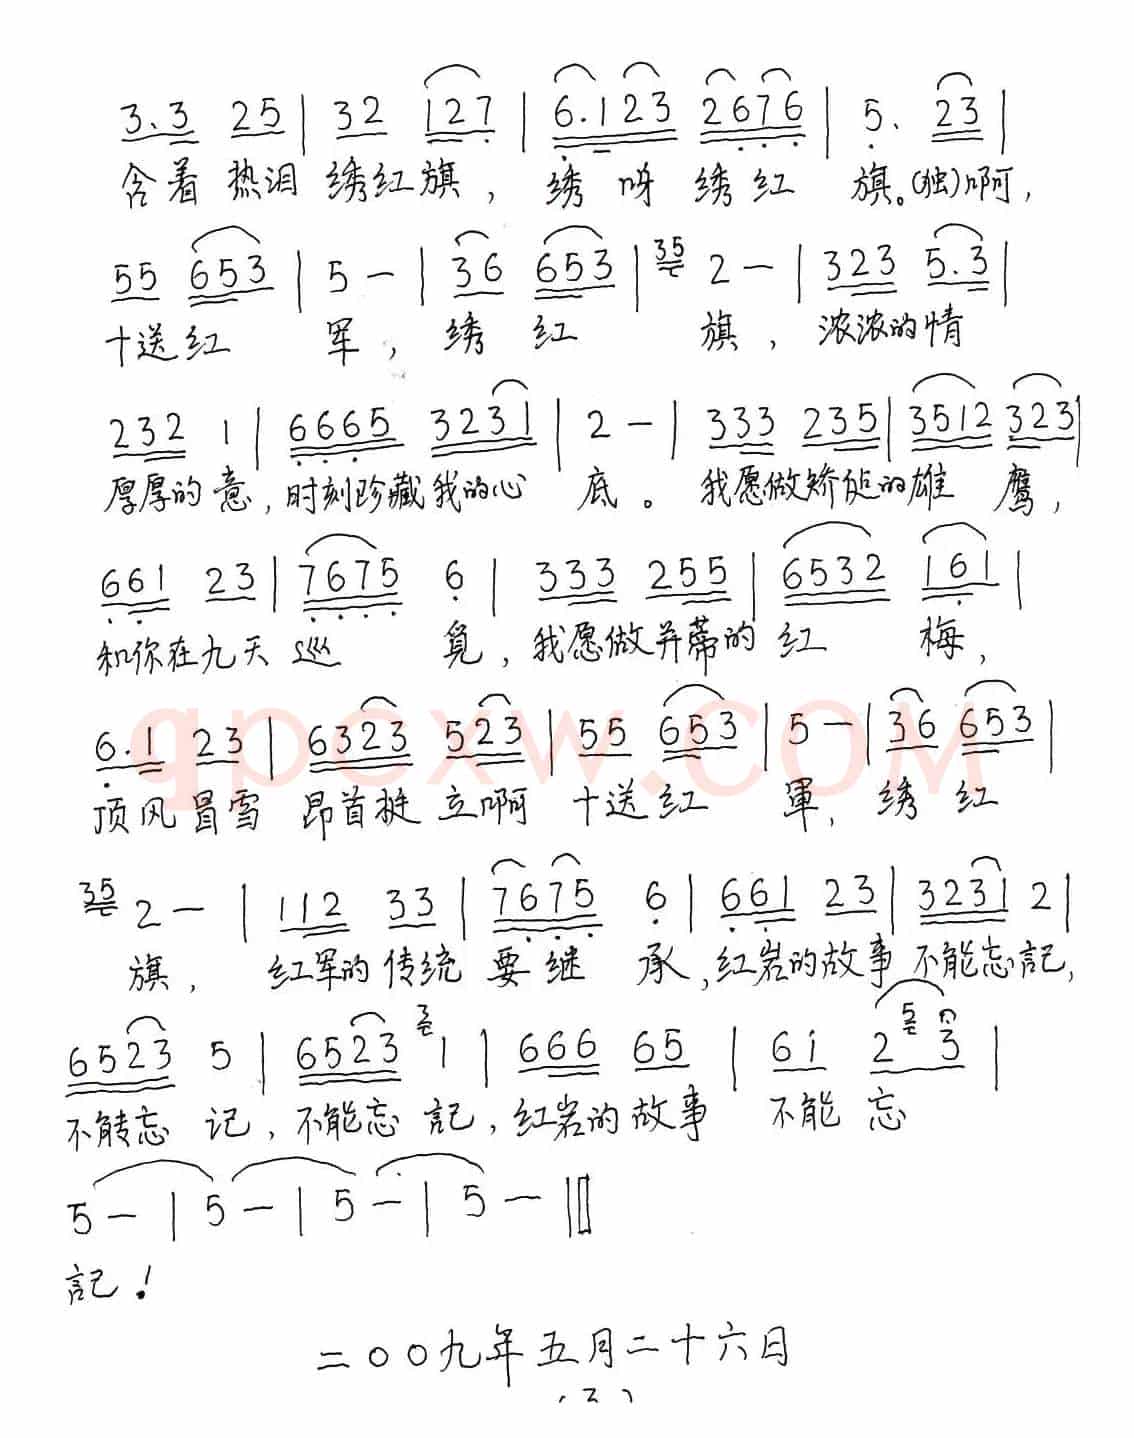 3.3 25 | 32 127 | 6.123 2676 | 5. 23 |
含着 热泪 绣红旗，绣 呀 绣 红 旗。(独)啊，
55 653 | 5 — | 36 653 | 35 2 — | 323 5.3 |
十送红 军，绣 红 旗，浓浓的情
232 1 | 6665 3231 | 2 — | 333 235 | 3512 323 |
厚厚的 意，时刻珍藏我的心 底。我愿做矫健的雄 鹰，
661 23 | 7675 6 | 333 255 | 6532 161 |
和你在九天 巡 觅，我愿做并蒂的 红 梅，
qpcxw.com
6.1 23 | 6323 523 | 55 653 | 5 — | 36 653 |
顶风冒雪 昂首挺 立啊 十送红 軍，绣 红
35 2 — | 112 33 | 7675 6 | 661 23 | 3231 2 |
旗，红军的传统 要继 承，红岩的故事 不能忘記，
6523 5 | 6523 2 1 | 666 65 | 61 2 5 3 |
不能忘 记，不能忘 記，红岩的故事 不能 忘
5 — | 5 — | 5 — | 5 — ‖
記！
二〇〇九年五月二十六日